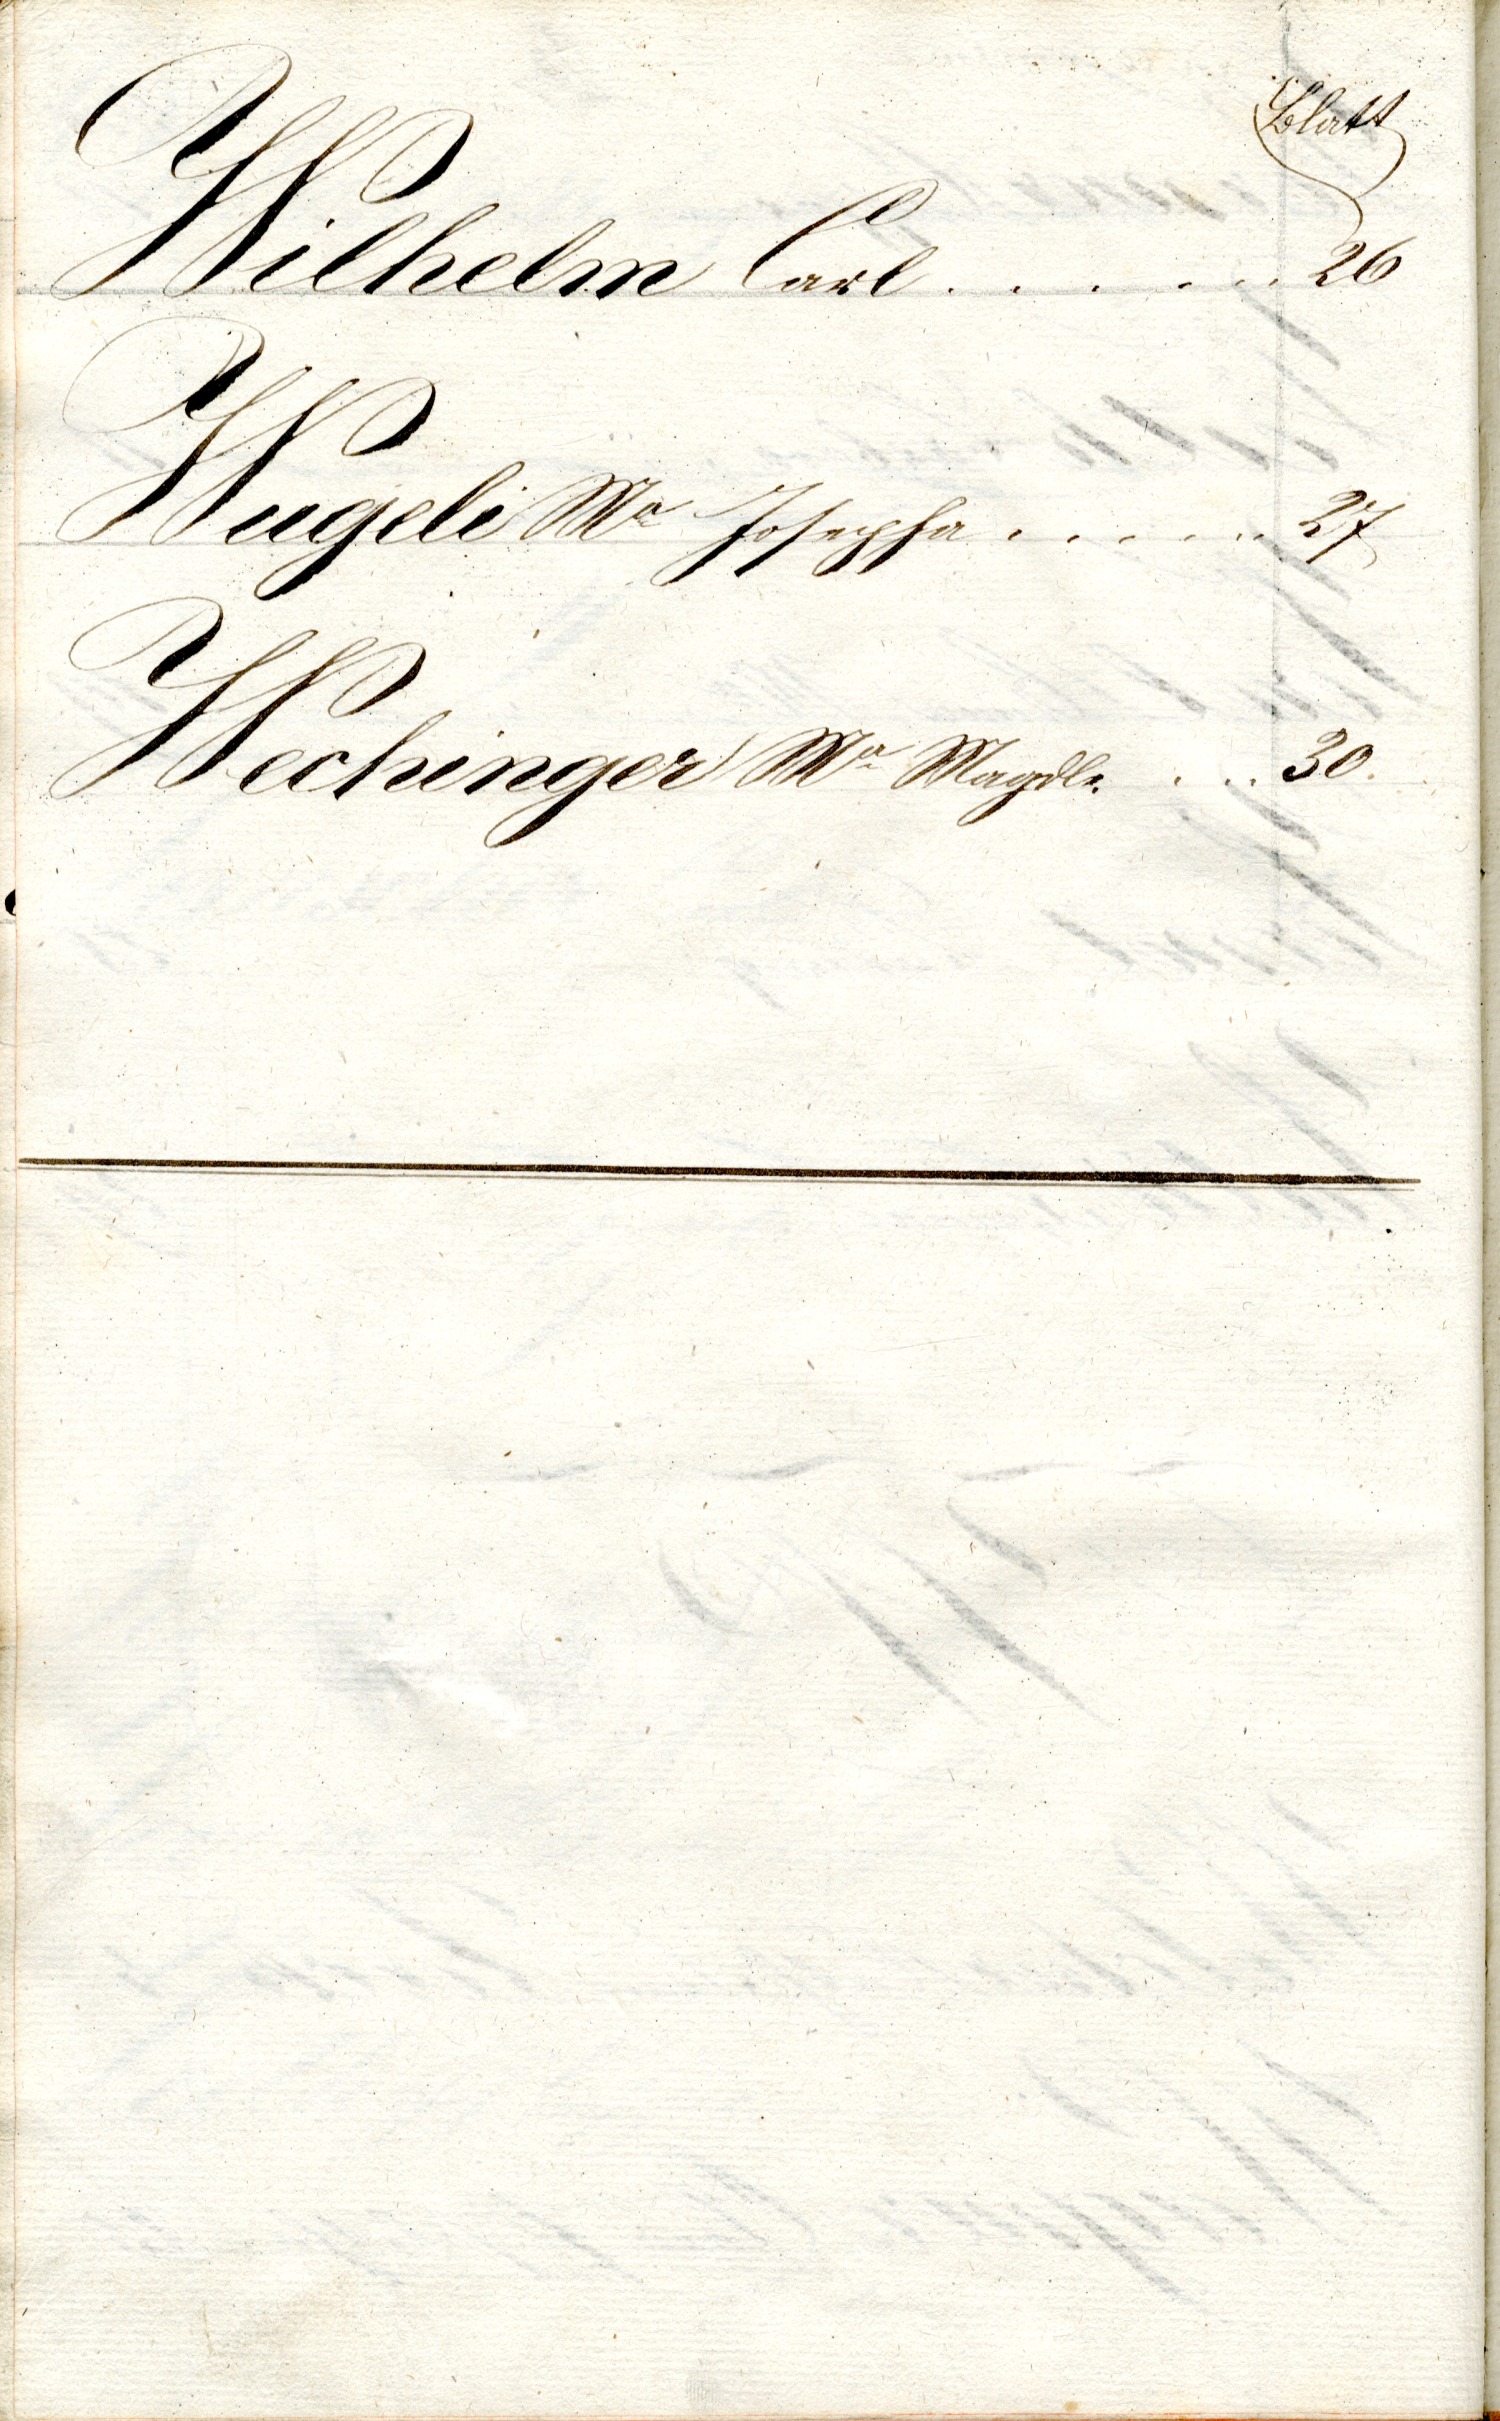 Blatt
Wilhelm Carl . . . . . . . 26
Wugeli Ma Josepha . . . . . . 27
Wechinger Ma Magdl. . . . 30.